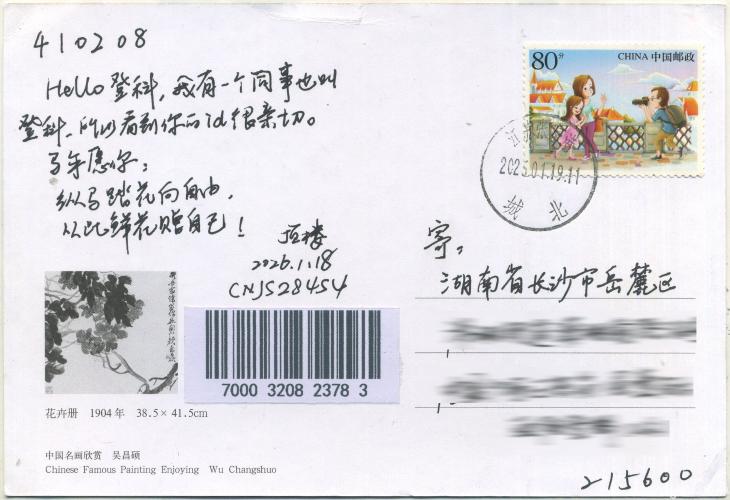 410208
Hello 登科，我有一个同事也叫
登科，所以看到你的id很亲切。
马年愿你：
纵马踏花向自由，
从此鲜花赠自己！
顶楼
2026.1.18
CNJS28454
80分
CHINA 中国邮政
2025.01.19.11
城北
寄：
湖南省长沙市岳麓区
7000 3208 2378 3
花卉册 1904年 38.5×41.5cm
中国名画欣赏 吴昌硕
Chinese Famous Painting Enjoying Wu Changshuo
215600